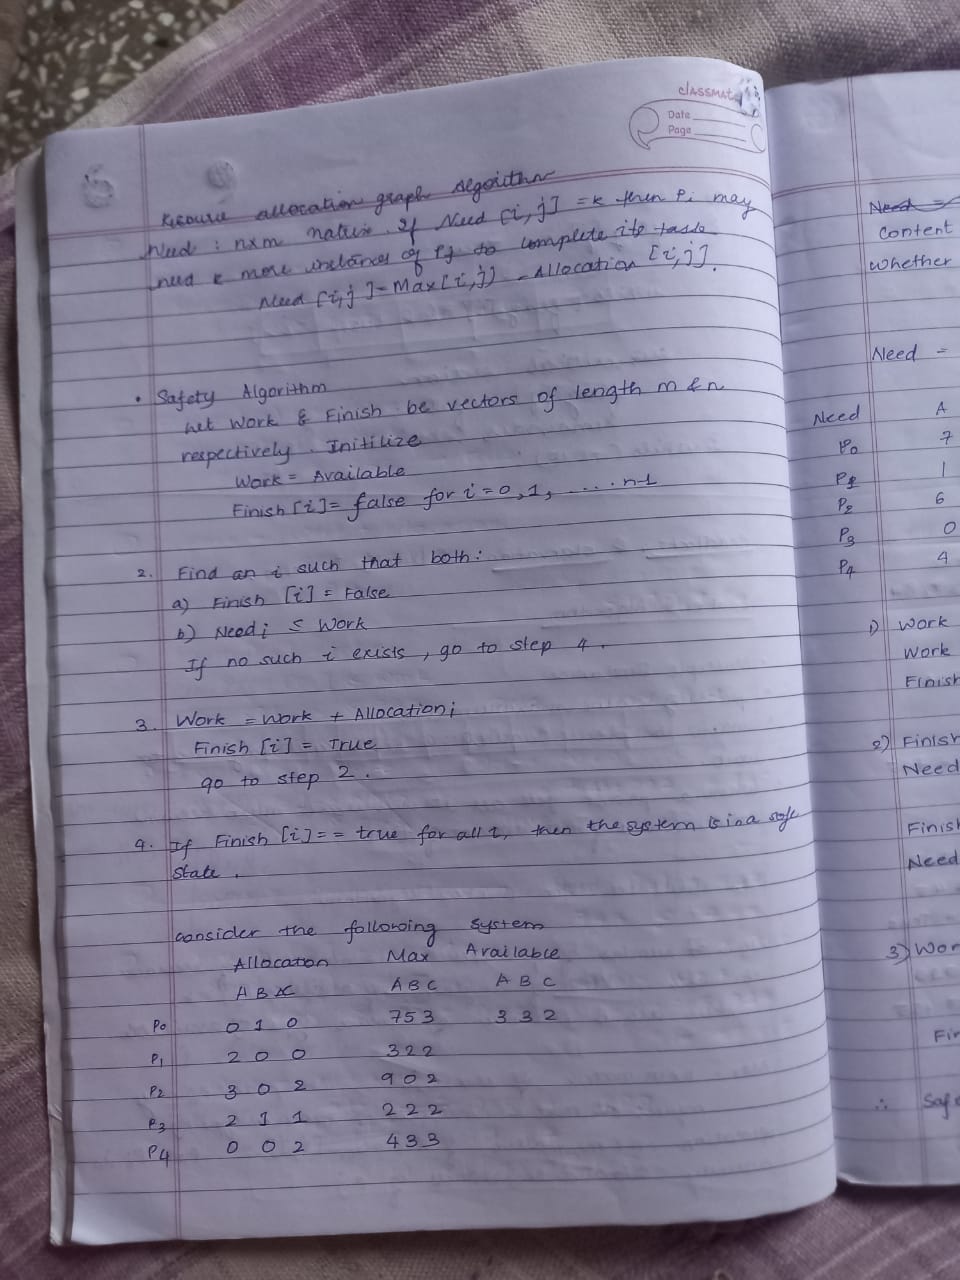 classmate
Date
Page
Resource allocation graph Algorithm
Need : nxm matrix. If Need [i, j] = k then Pi may
need k more instances of Rj to complete its task
Need [i, j] = Max [i, j) - Allocation [i, j].
• Safety Algorithm
Let Work & Finish be vectors of length m & n
respectively. Initilize
Work = Available
Finish [i] = false for i = 0, 1, .... n-1
2. Find an i such that both :
a) Finish [i] = False
b) Needi ≤ Work
If no such i exists, go to step 4.
3. Work = Work + Allocationi
Finish [i] = True
go to step 2.
4. If Finish [i] == true for all i, then the system is in a safe
state.
consider the following system
Allocation Max Available
A B C A B C A B C
P0 0 1 0 7 5 3 3 3 2
P1 2 0 0 3 2 2
P2 3 0 2 9 0 2
P3 2 1 1 2 2 2
P4 0 0 2 4 3 3
Need =
Content
Whether
Need =
Need A
P0 7
P1 1
P2 6
P3 0
P4 4
1) Work
Work
Finish
2) Finish
Need
Finish
Need
3) Wor
Fin
∴ Safe